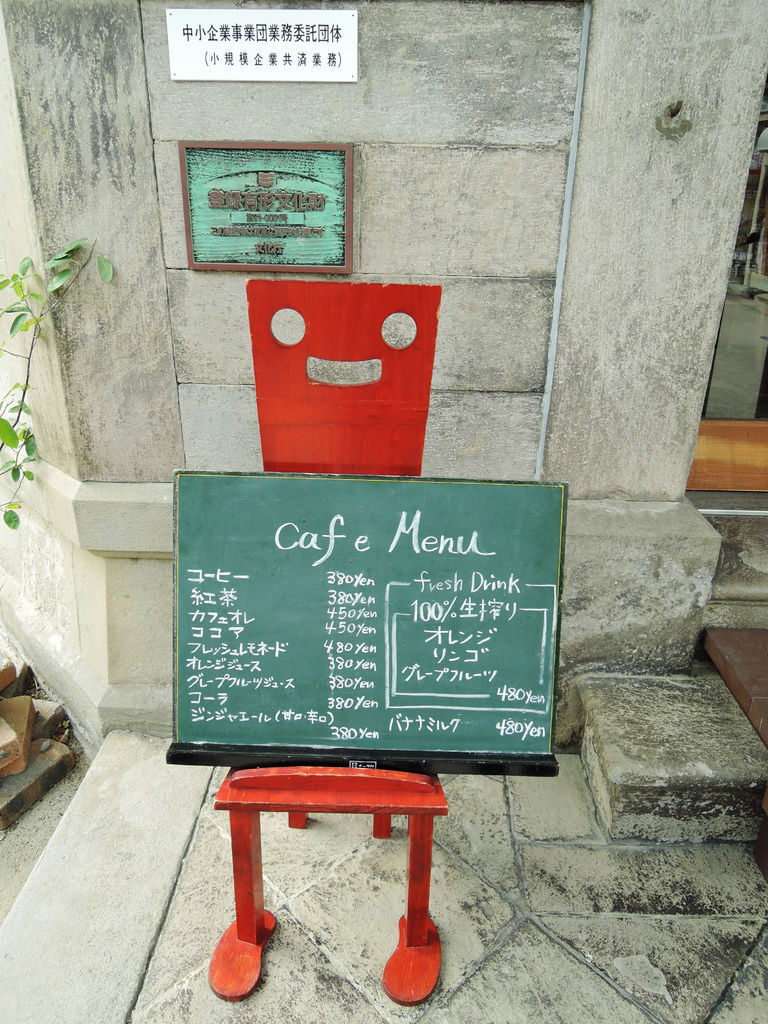 中小企業事業団業務委託団体
(小規模企業共済業務)
登録有形文化財
文化庁
Cafe Menu
コーヒー 380yen
紅茶 380yen
カフェオレ 450yen
ココア 450yen
フレッシュレモネード 480yen
オレンジジュース 380yen
グレープフルーツジュース 380yen
コーラ 380yen
ジンジャエール(甘口・辛口)
380yen
fresh Drink
100%生搾り
オレンジ
リンゴ
グレープフルーツ
480yen
バナナミルク 480yen